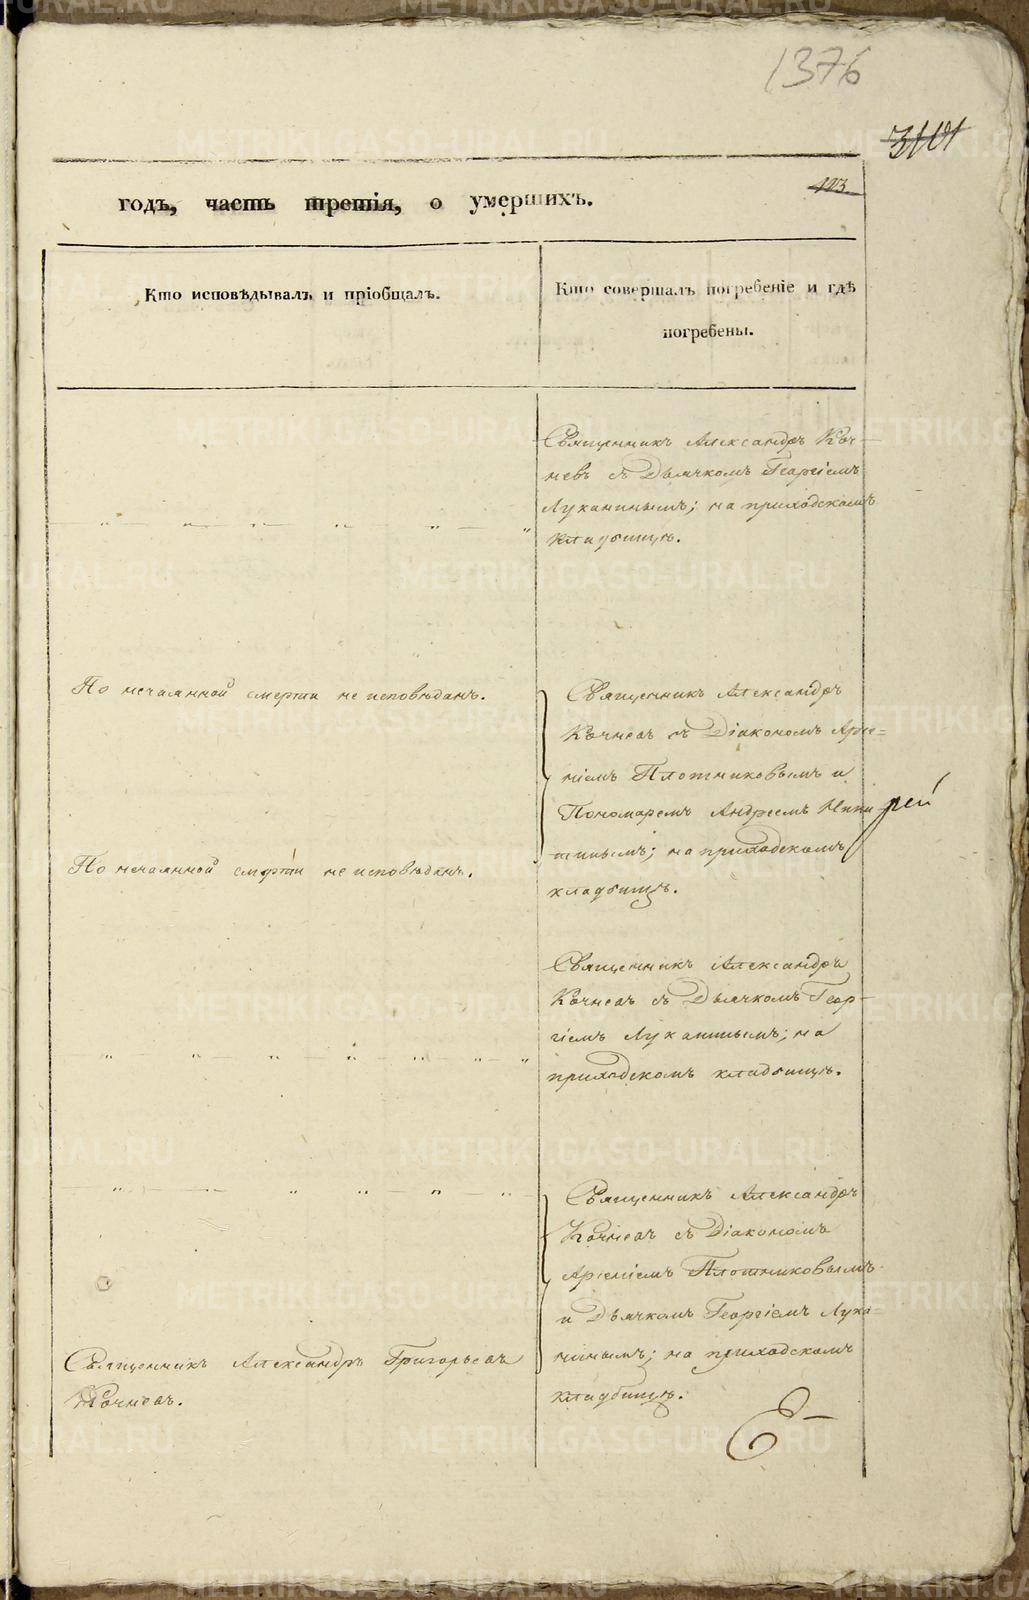 1376
3101
113
годъ, часть третія, о умершихъ.
Кто исповѣдывалъ и пріобщалъ.
Кто совершалъ погребеніе и гдѣ
погребены.
Священникъ Александръ Коч-
невъ съ Дьячкомъ Георгіемъ
Луканинымъ; на приходскомъ
кладбищѣ.
По нечаянной смерти не исповѣданъ.
Священникъ Александръ
Кочневъ съ Діакономъ Арсе-
ніемъ Плотниковымъ и
Пономаремъ Андреемъ Ники
тинымъ; на приходскомъ
кладбищѣ.
По нечаянной смерти не исповѣданъ.
Священникъ Александръ
Кочневъ съ Дьячкомъ Геор-
гіемъ Луканинымъ; на
приходскомъ кладбищѣ.
Священникъ Александръ
Кочневъ съ Діакономъ
Арсеніемъ Плотниковымъ
и Дьячкомъ Георгіемъ Лука-
нинымъ; на приходскомъ
кладбищѣ.
Священникъ Александръ Григорьевъ
Кочневъ.
рей
METRIKI.GASO-URAL.RU